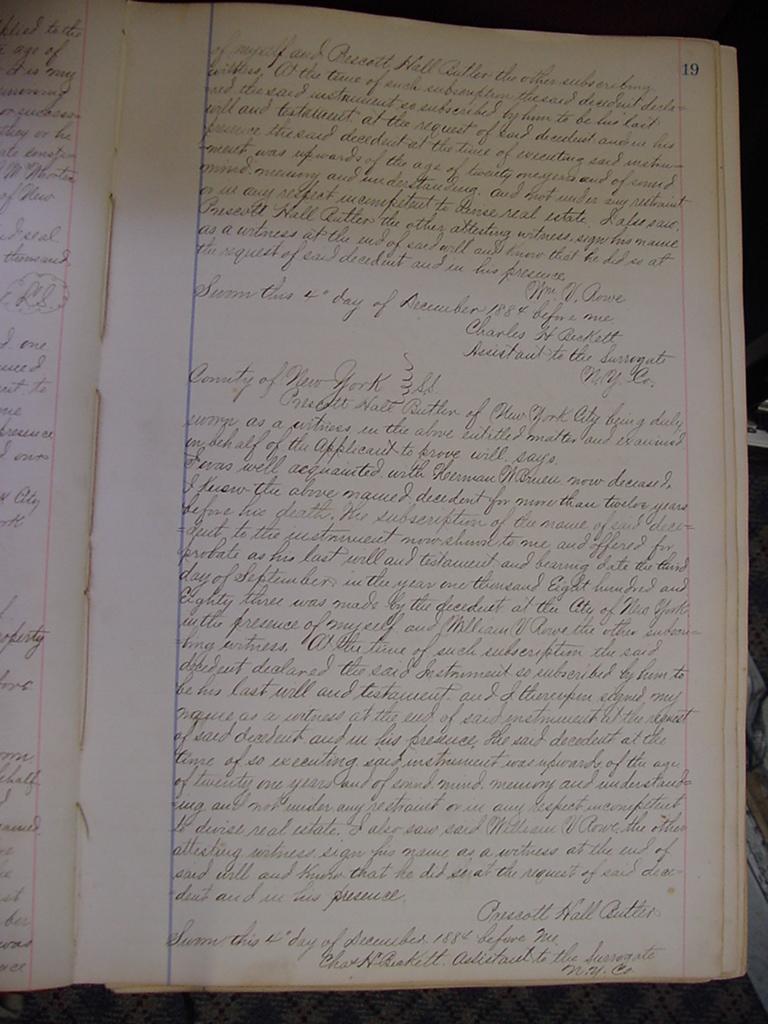 plied to the
age of
It is my
or successo
they or he
ate consti
W M Whorter
of New
and seal
thousand
L.S.
d one
ent to
me
presence
d
x City
ork
f
operty
fors
ehalf
d
amed
e
st
ber
was
ce
19
of myself and Prescott Hall Butler the other subscribing
witness. At the time of such subscription the said decedent decla-
red the said instrument so subscribed by him to be his last
will and testament at the request of said decedent and in his
presence the said decedent at the time of executing said instru-
ment was upwards of the age of twenty one years and of sound
mind memory and understanding and not under any restraint
or in any respect incompetent to devise real estate. I also saw
Prescott Hall Butler the other attesting witness sign his name
as a witness at the end of said will and know that he did so at
the request of said decedent and in his presence.
Wm. V. Rowe
Sworn this 4" day of December 1884 before me
Charles H Beckett
Assistant to the Surrogate
N.Y. Co.
County of New York } SS
Prescott Hall Butler of New York City being duly
sworn as a witness in the above entitled matter and examined
in behalf of the Applicant to prove will says.
I was well acquainted with Herman W Bruen now deceased.
I knew the above named decedent for more than twelve years
before his death. The subscription of the name of said dece-
dent to the instrument now shown to me and offered for
probate as his last will and testament and bearing date the third
day of September in the year one thousand Eight hundred and
Eighty three was made by the decedent at the City of New York
in the presence of myself and William V Rowe the other subscri-
bing witness. At the time of such subscription the said
decedent declared the said Instrument so subscribed by him to
be his last will and testament and I thereupon signed my
name as a witness at the end of said instrument at the request
of said decedent and in his presence. The said decedent at the
time of so executing said instrument was upwards of the age
of twenty one years and of sound mind memory and understand-
ing and not under any restraint or in any respect incompetent
to devise real estate. I also saw said William V Rowe the other
attesting witness sign his name as a witness at the end of
said will and know that he did so at the request of said dece-
dent and in his presence.
Prescott Hall Butler
Sworn this 4" day of December 1884 before Me
Chas H Beckett. Assistant to the Surrogate
N.Y. Co